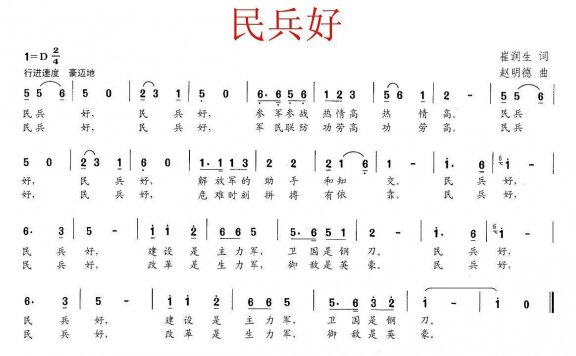 民兵好
1=D 2/4
崔润生 词
行进速度 豪迈地
赵明德 曲
5 5 6 | 5 0 | 2 3 1 | 5 0 | 6· 6 5 6 | 1 1 3 2 | 5 6 1 | 2 - | 5 5 6 |
民兵 好, 民 兵 好, 参军参战 热情高 热 情 高。 民兵
民兵 好, 民 兵 好, 军民联防 功劳高 功 劳 高。 民兵
5 0 | 2 3 1 | 6 0 | 1· 1 1 3 | 5 5 | 2 1 6 | 1 - | 1· 6 | 1
好, 民 兵 好, 解放军的 助 手 和知 交。 民 兵 好,
好, 民 兵 好, 危难时刻 拼 搏 有依 靠。 民 兵 好,
6· 3 | 5 - | 1 1 | 2 1 2 | 6 6 5 | 5 · 3 2 | 2 - | 1· 6 | 1
民 兵 好, 建 设 是 主 力 军, 卫 国 是 钢 刀。 民 兵 好,
民 兵 好, 改 革 是 生 力 军, 御 敌 是 英 豪。 民 兵 好,
6· 3 | 5 - | 1 1 | 2 1 2 | 6 6 5 | 6 3 2 | 1 - | 1 0 ‖
民 兵 好, 建 设 是 主 力 军, 卫 国 是 钢 刀。
民 兵 好, 改 革 是 生 力 军, 御 敌 是 英 豪。